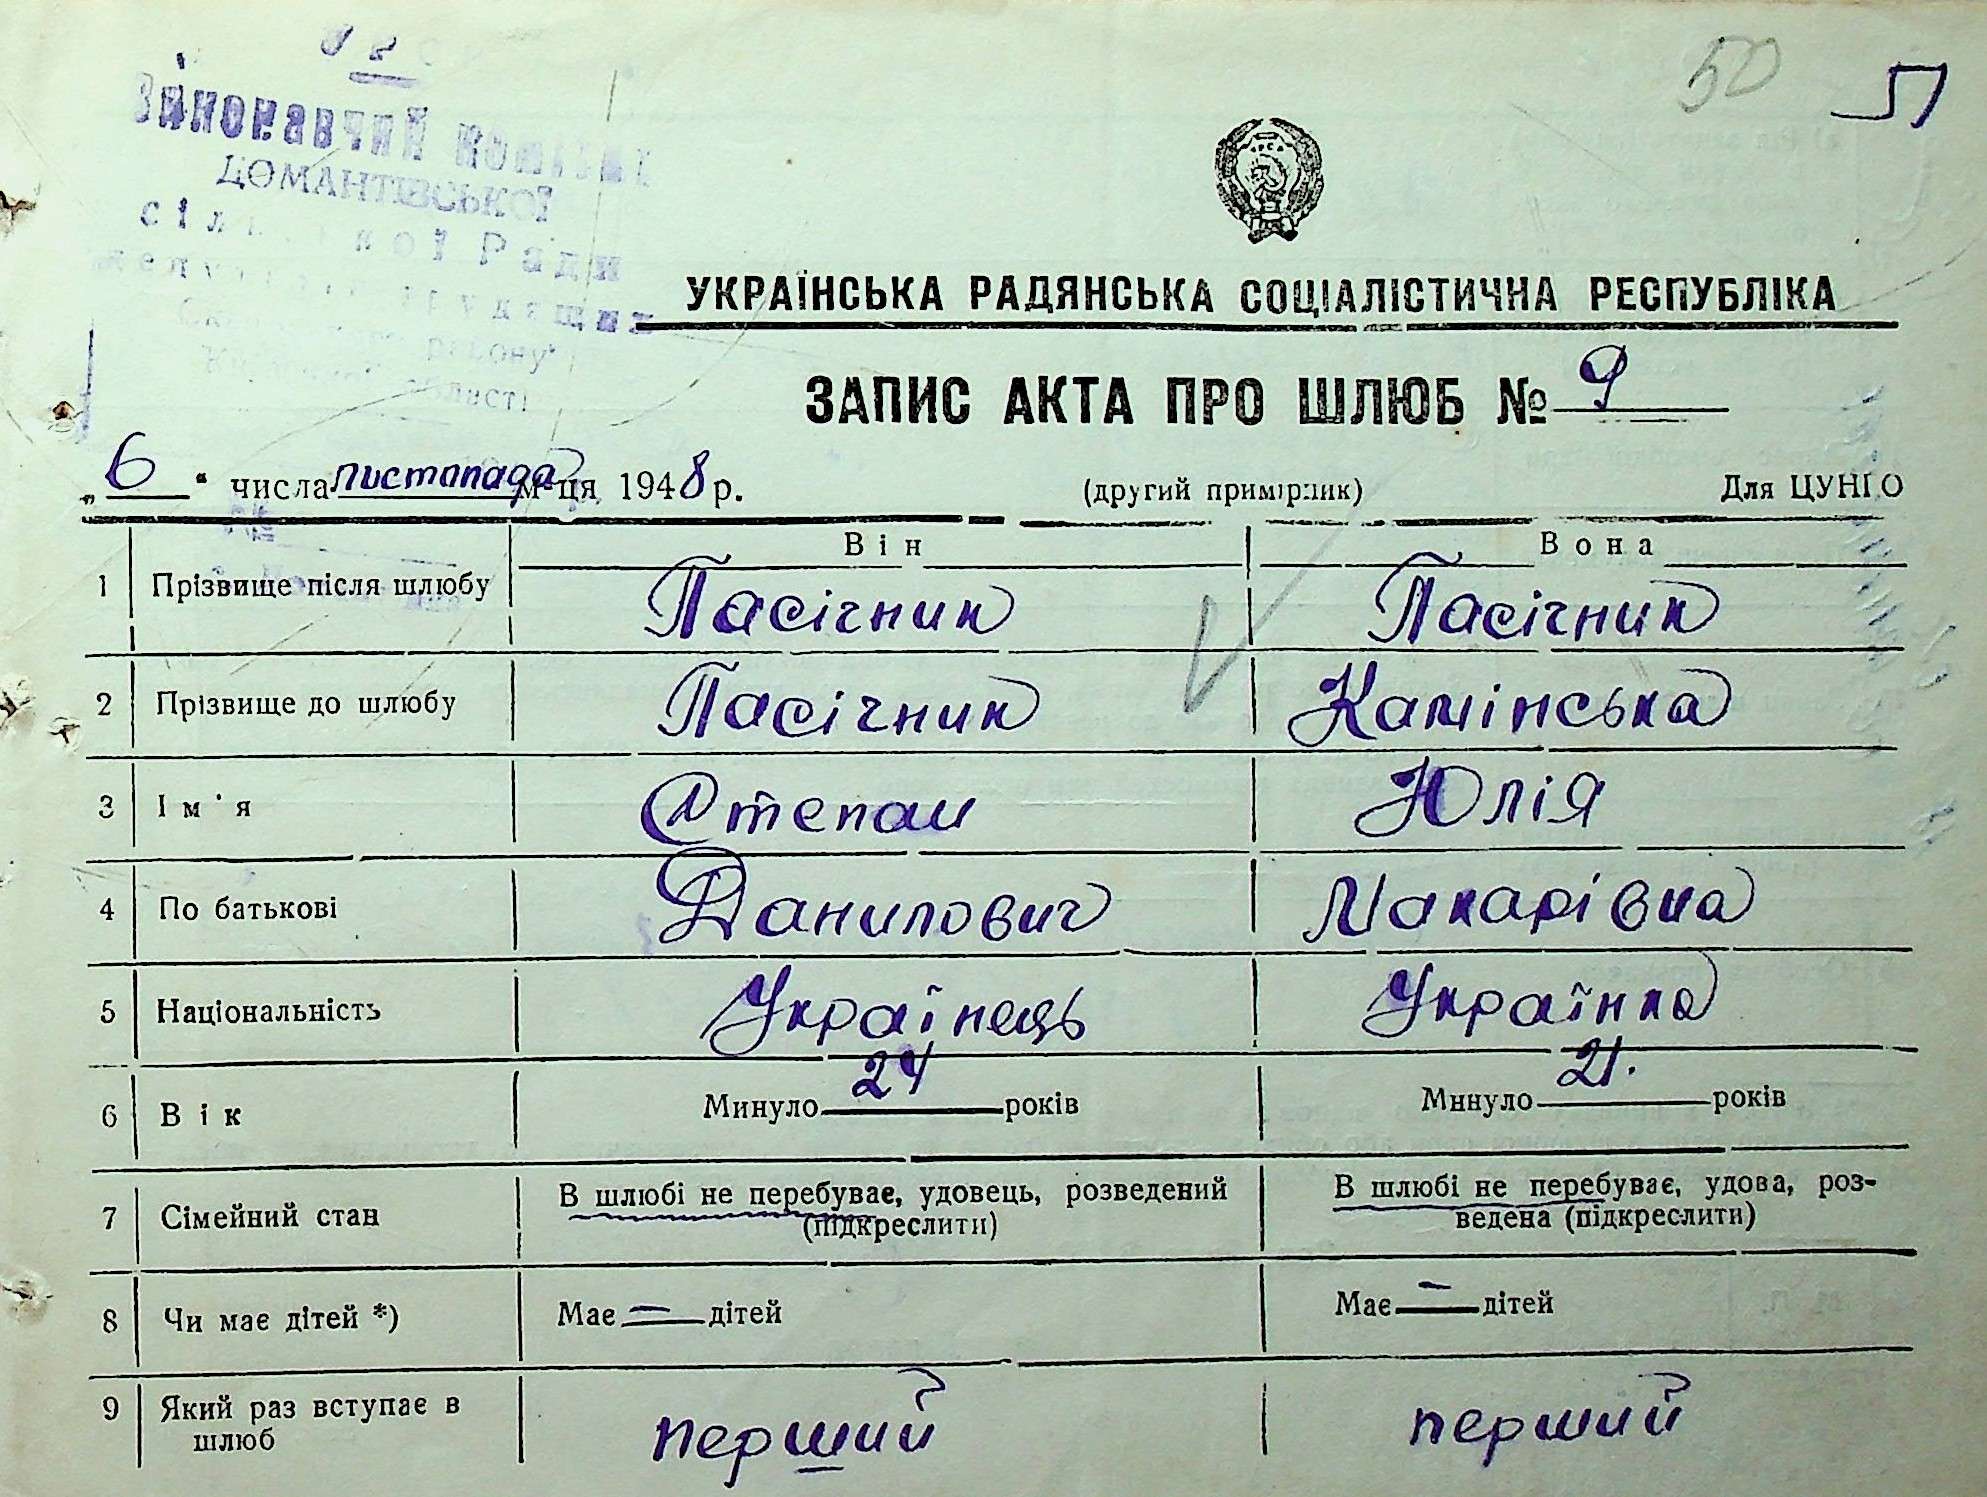 Виконавчий комітет
ДОМАНТІВСЬКОЇ
сільської Ради
депутатів трудящих
району
області
50
П
УКРАЇНСЬКА РАДЯНСЬКА СОЦІАЛІСТИЧНА РЕСПУБЛІКА
ЗАПИС АКТА ПРО ШЛЮБ № 9
„6“ числа листопада м-ця 1948 р. (другий примірник) Для ЦУНГО
Він Вона
1 Прізвище після шлюбу Пасічник Пасічник
2 Прізвище до шлюбу Пасічник Камінська
3 Ім'я Степан Юлія
4 По батькові Данилович Макарівна
5 Національність Українець Українка
6 Вік Минуло 24 років Минуло 21. років
7 Сімейний стан В шлюбі не перебуває, удовець, розведений (підкреслити) В шлюбі не перебуває, удова, роз-
ведена (підкреслити)
8 Чи має дітей *) Має — дітей Має — дітей
9 Який раз вступає в шлюб перший перший